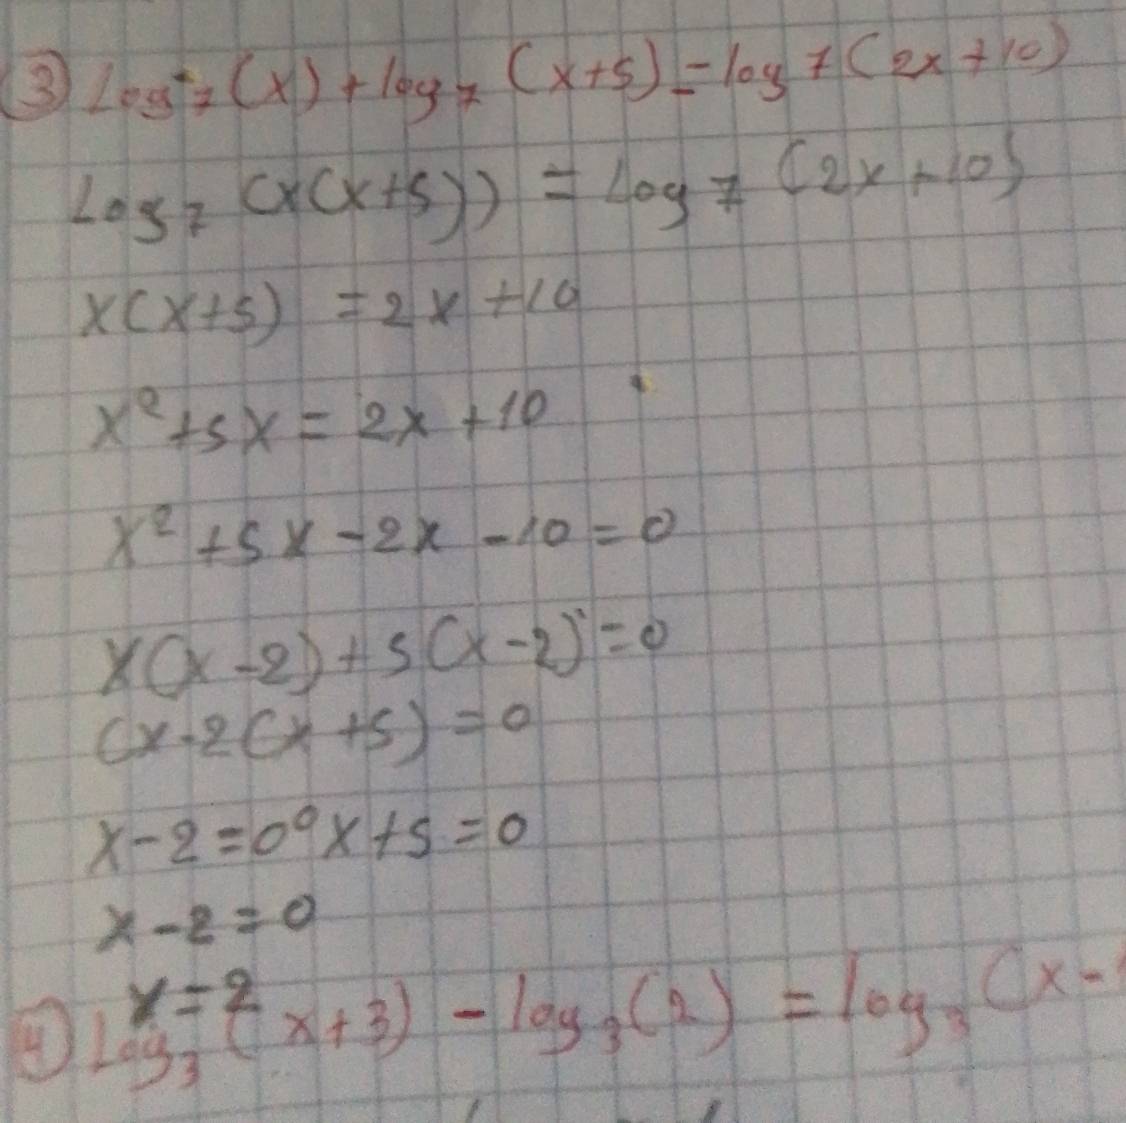 ③ Log 7 (x) + log 7 (x+5) = log 7 (2x+10)
Log 7 (x(x+5)) = Log 7 (2x+10)
x(x+5) = 2x+10
x²+5x = 2x+10
x²+5x-2x-10=0
x(x-2)+5(x-2)=0
(x-2(x+5)=0
x-2=0 o x+5=0
x-2=0
x=2
④ Log₃(x+3) - log₃(2) = log₃(x-